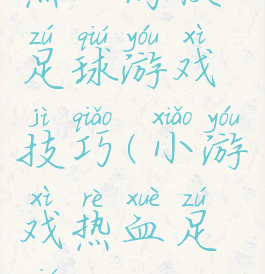 zú qiú yóu xì
足球游戏
jì qiǎo xiǎo yóu
技巧(小游
xì rè xuè zú
戏热血足